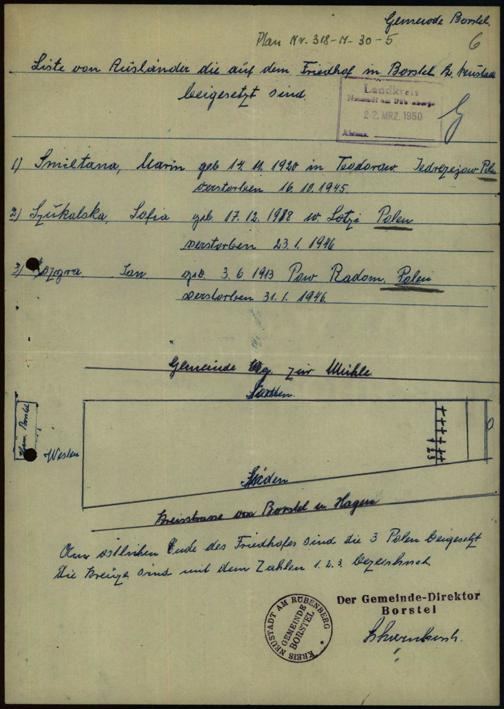 Gemeinde Borstel
Plan Nr. 318-H-30-5
6
Liste von Ausländer die auf dem Friedhof in Borstel Kr. Neustadt
beigesetzt sind.
Landkreis
Neustadt am Rübenberge
22. MRZ. 1950
1) Smiltana, Marin geb 14.11.1920 in Teodoraw Jedrzejow Polen
verstorben 16.10.1945
2) Szukalska, Sofia geb 17.12.1918 Lotzi Polen
verstorben 23.1.1946
3) Jan geb. 3.6.1913 Pow Radom, Polen
verstorben 31.1.1946
Gemeinde Weg zur Mühle
Norden
Borstel
Westen
1 2 3
O
Süden
Kreisstrasse von Borstel n Hagen
Am östlichen Ende des Friedhofes sind die 3 Polen beigesetzt
Die Kreuze sind mit dem Zahlen 1. 2. 3. bezeichnet
Der Gemeinde-Direktor
Borstel
KREIS NEUSTADT AM RÜBENBERG
GEMEINDE
BORSTEL